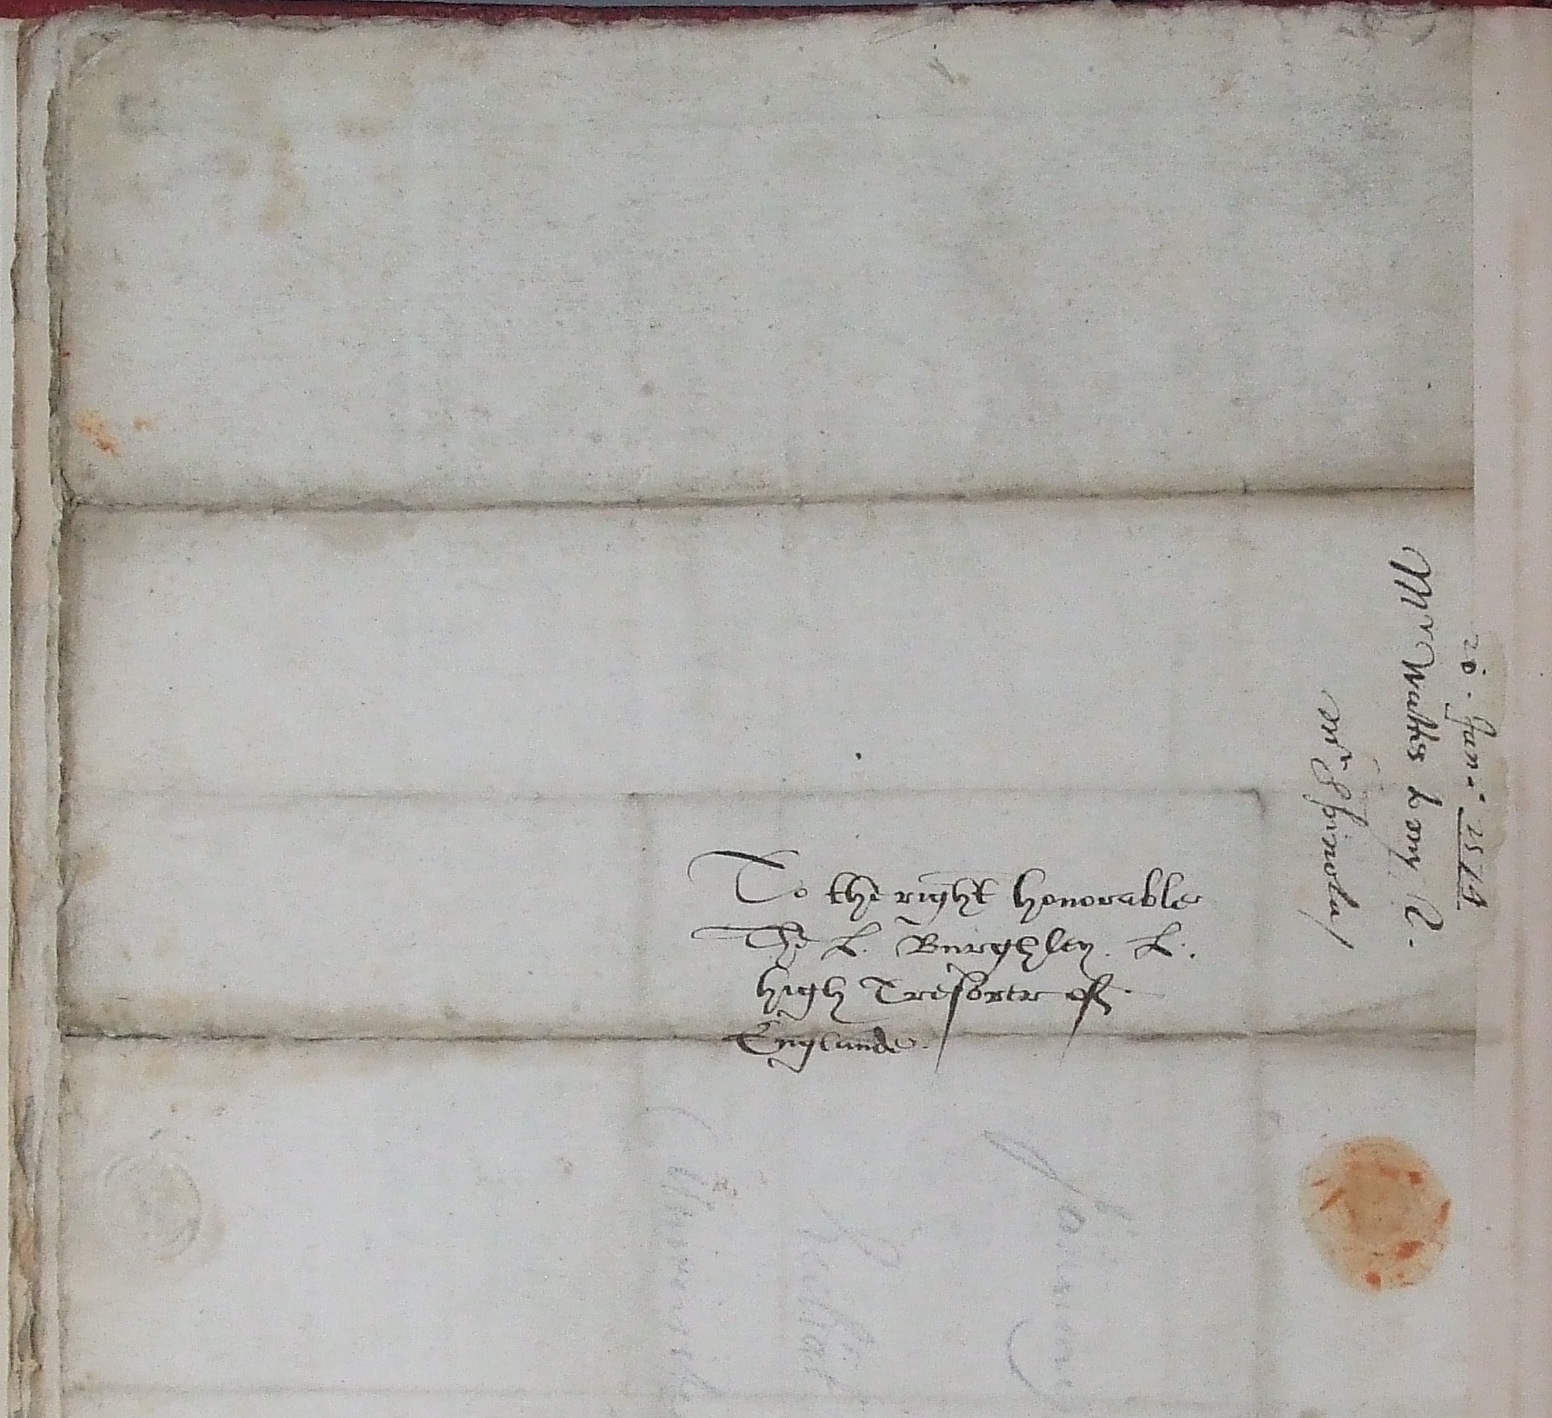 To the right honorable
The L. Burghley. L.
high Tresorer of
Englande.
20. Janu: 1574
Mr Watts to my L.
mr Spinola